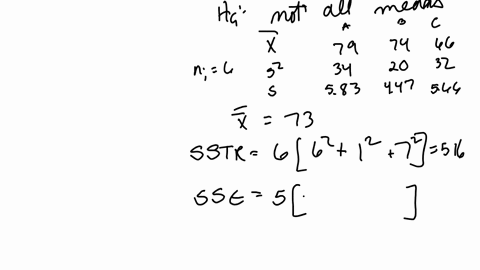 Ha: not all means
A B C
x̄ 79 74 66
nj = 6 s² 34 20 32
s 5.83 4.47 5.66
x̿ = 73
SSTR = 6 [6² + 1² + 7²] = 516
SSE = 5 [ ]